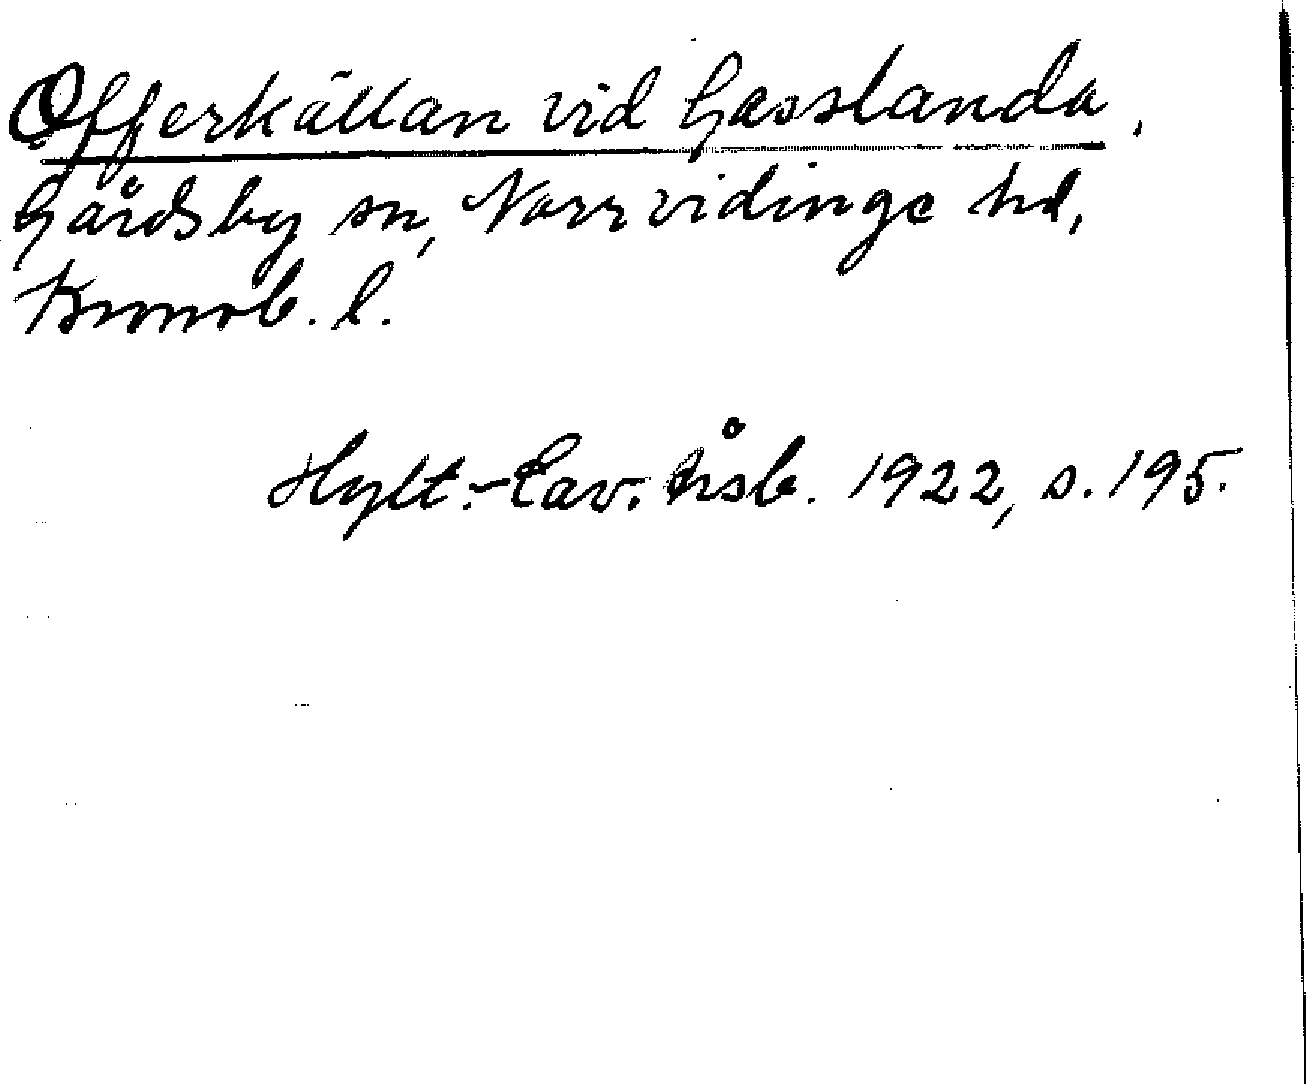 Offerkällan vid Gasslanda,
Gårdsby sn, Norrvidinge hd,
Kronob. l.
Hylt.-Cav. Åsb. 1922, s. 195.